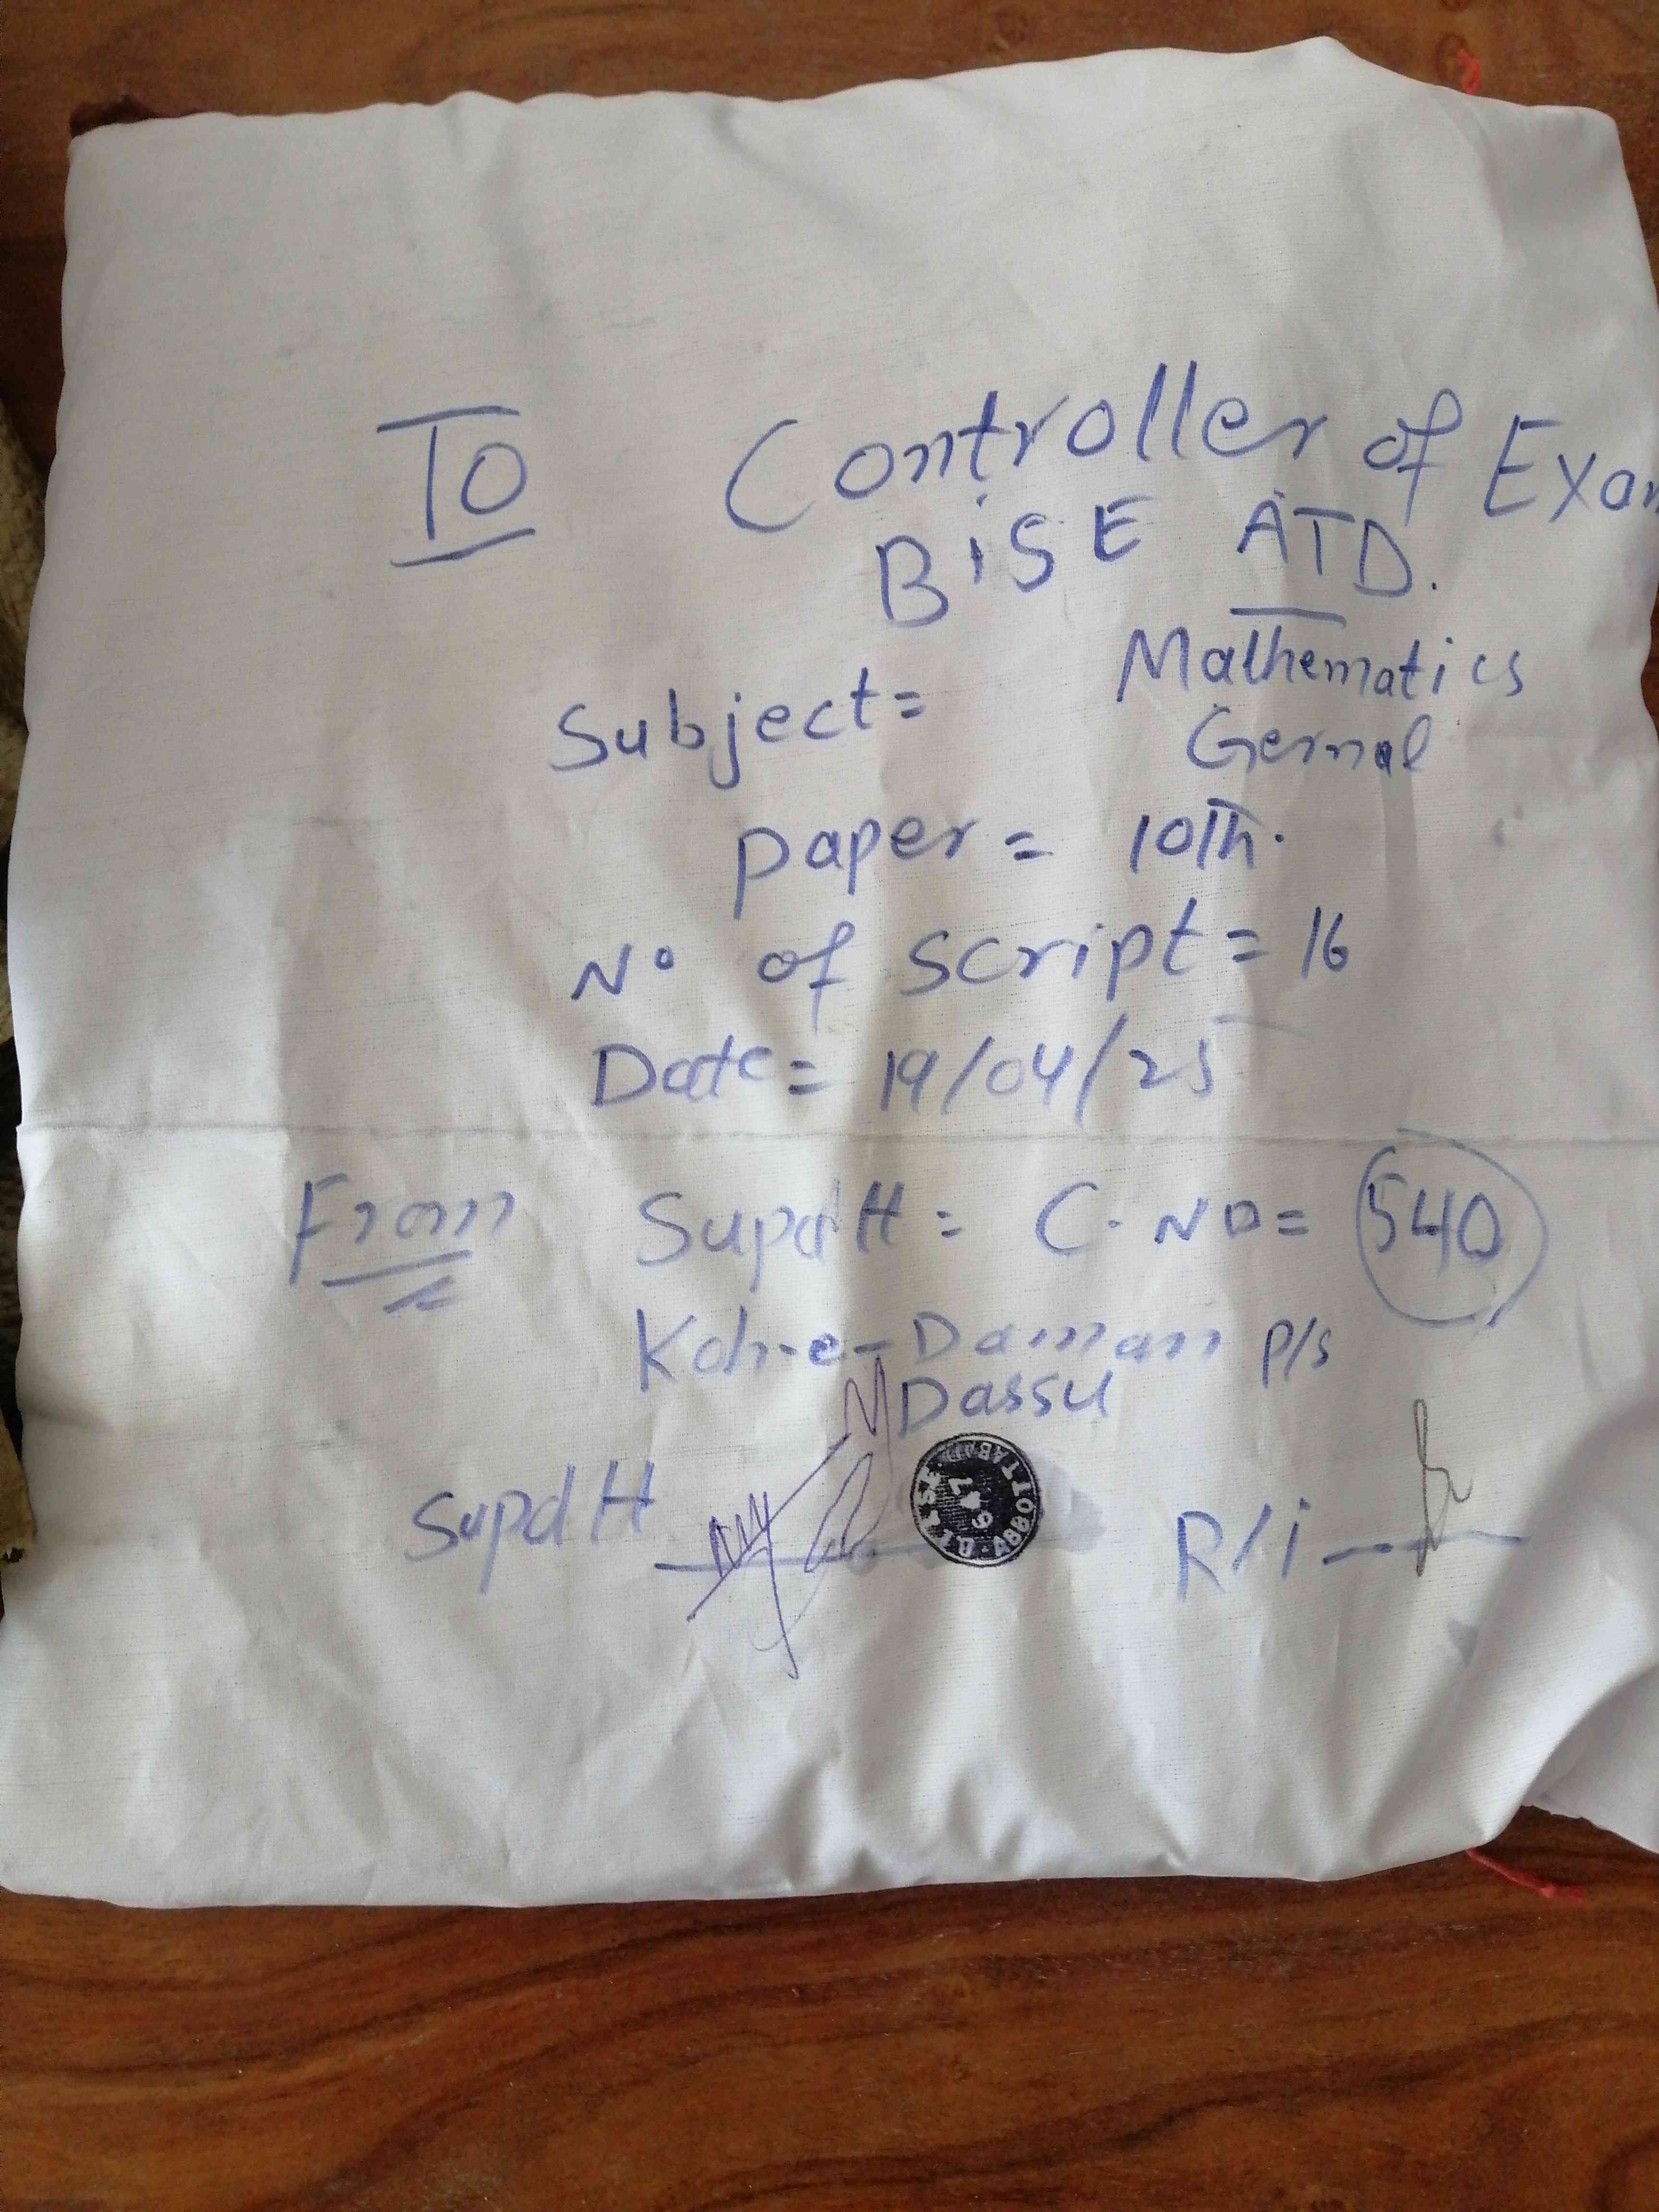 To Controller of Exam
BiSE ATD.
Subject= Mathematics
Gernal
paper= 10Th.
No of script= 16
Date= 19/04/25
From Supdtt= C.NO= 540
Koh-e-Daman P/S
Dassu
Supdtt
R/i
B.I.S.E. ABBOTTABAD